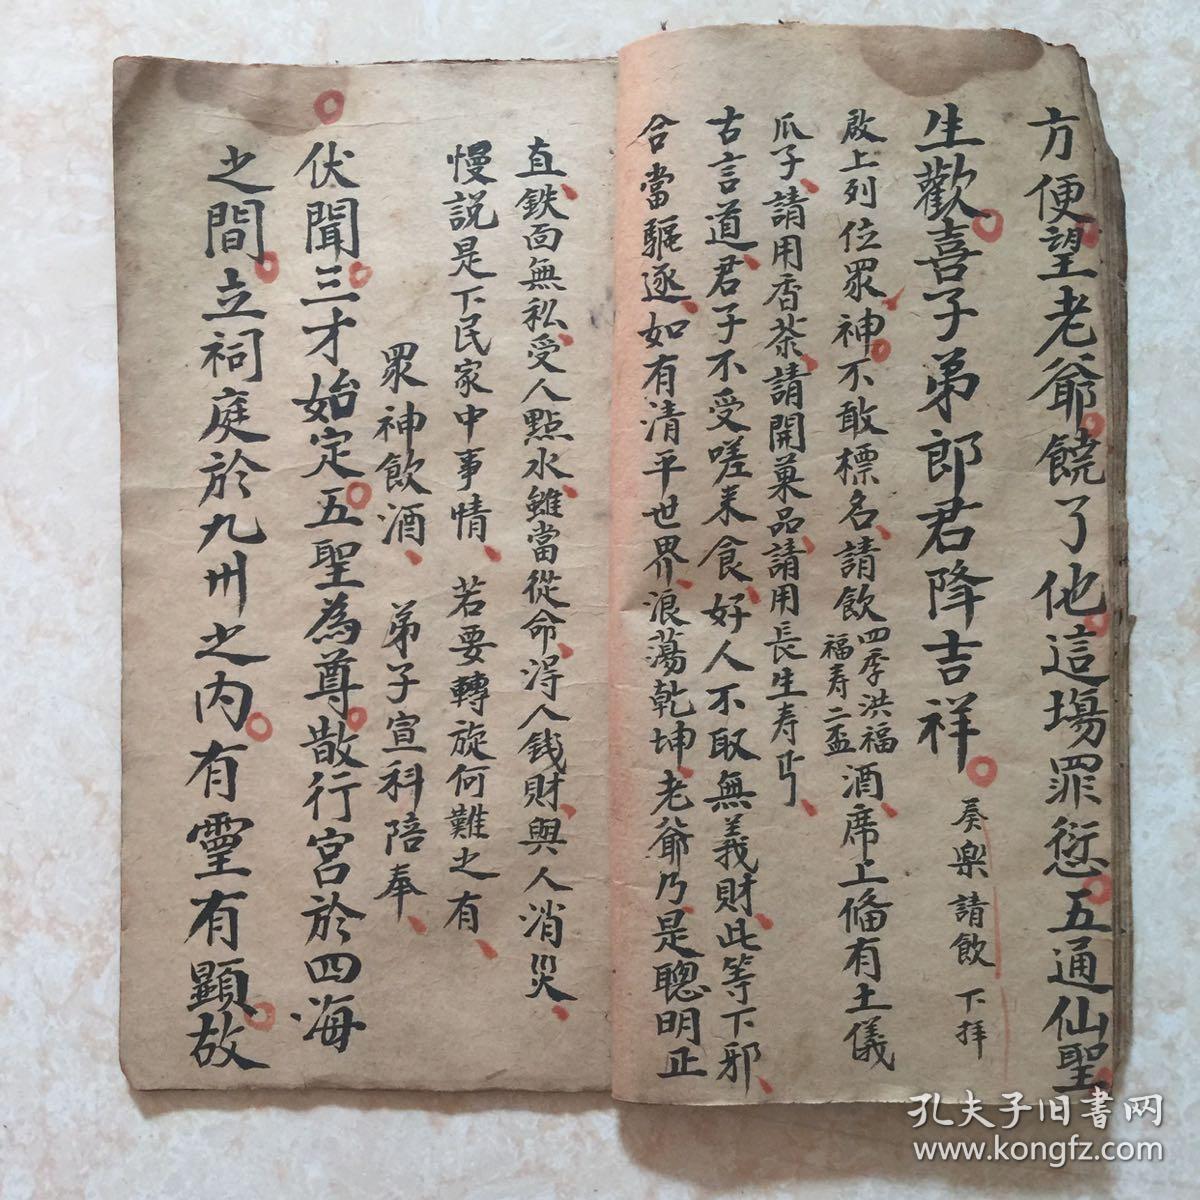 方便望老爺饒了他這場罪愆五通仙聖
生歡喜子弟郎君降吉祥 奏樂請飲 下拜
啟上列位眾神不敢標名請飲四季洪福福寿二盃酒席上俻有土儀
瓜子請用香茶請開菓品請用長生寿
古言道君子不受嗟来食好人不取無義財此等下邪
合當驅逐如有清平世界浪蕩乾坤老爺乃是聰明正
直鉄面無私受人點水雖當從命淂人钱財與人消災
慢説是下民家中事情若要轉旋何難之有
眾神飲酒 弟子宣科陪奉
伏聞三才始定五聖為尊散行宮於四海
之間立祠庭於九州之内有靈有顕故
孔夫子旧书网
www.kongfz.com